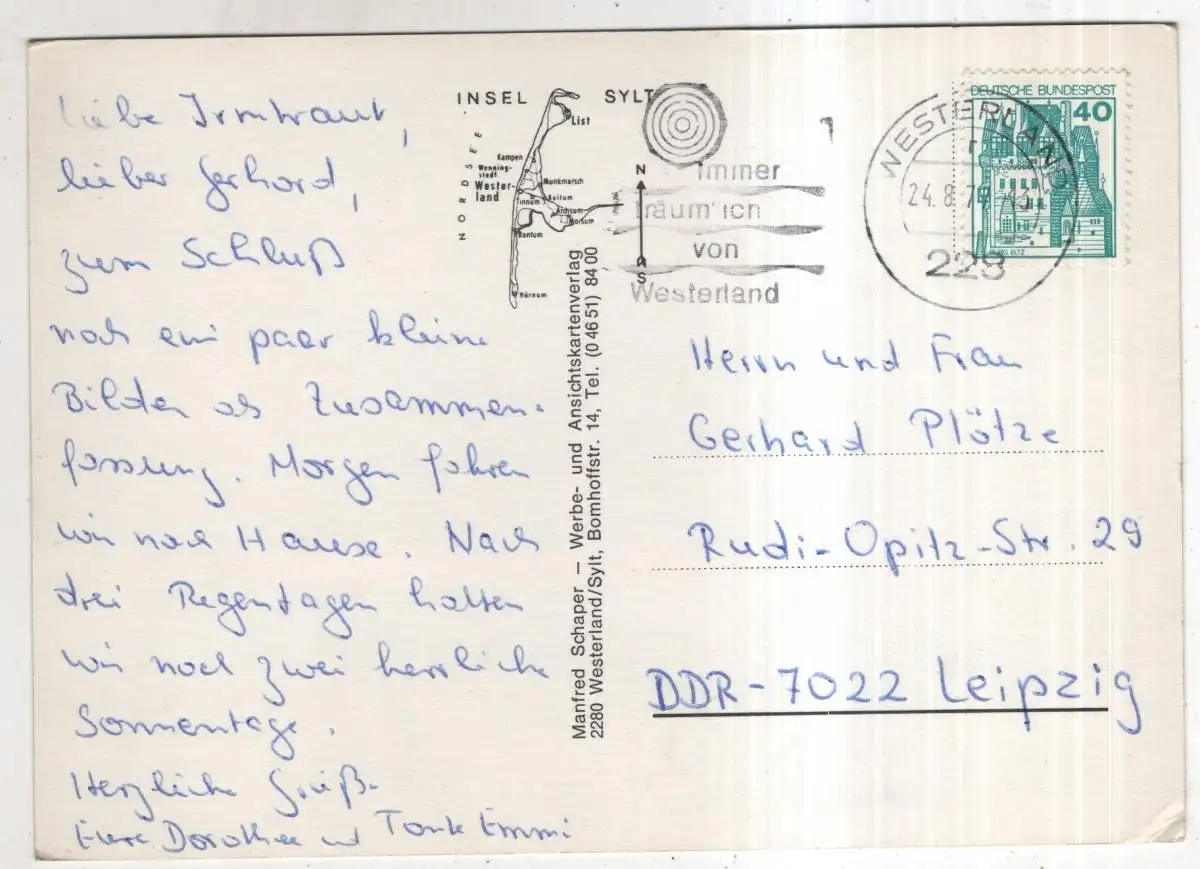 Liebe Irmtraut,
lieber Gerhard,
zum Schluß
noch ein paar kleine
Bilder als Zusammen-
fassung. Morgen fahren
wir nach Hause. Nach
drei Regentagen hatten
wir noch zwei herrliche
Sonnentage.
Herzliche Grüße
Eure Dorothee u Tante Emmi
INSEL SYLT
NORDSEE
List
Kampen
Wenning-
stedt
Wester-
land
Munkmarsch
Tinnum
Keitum
Archsum
Morsum
Rantum
Hörnum
N
S
Manfred Schaper — Werbe- und Ansichtskartenverlag
2280 Westerland/Sylt, Bomhoffstr. 14, Tel. (0 46 51) 84 00
immer
träum' ich
von
Westerland
WESTERLAND
24.8.
228
DEUTSCHE BUNDESPOST
40
BURG ELTZ
Herrn und Frau
Gerhard Plötze
Rudi-Opitz-Str. 29
DDR-7022 Leipzig